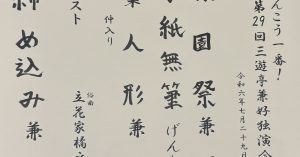 んこう一番！
第29回三遊亭兼好独演会
令和六年七月二十九日
園祭 兼
紙無筆 げん
仲入り
人形 兼
俗曲 立花家橘之
スト
締め込み 兼